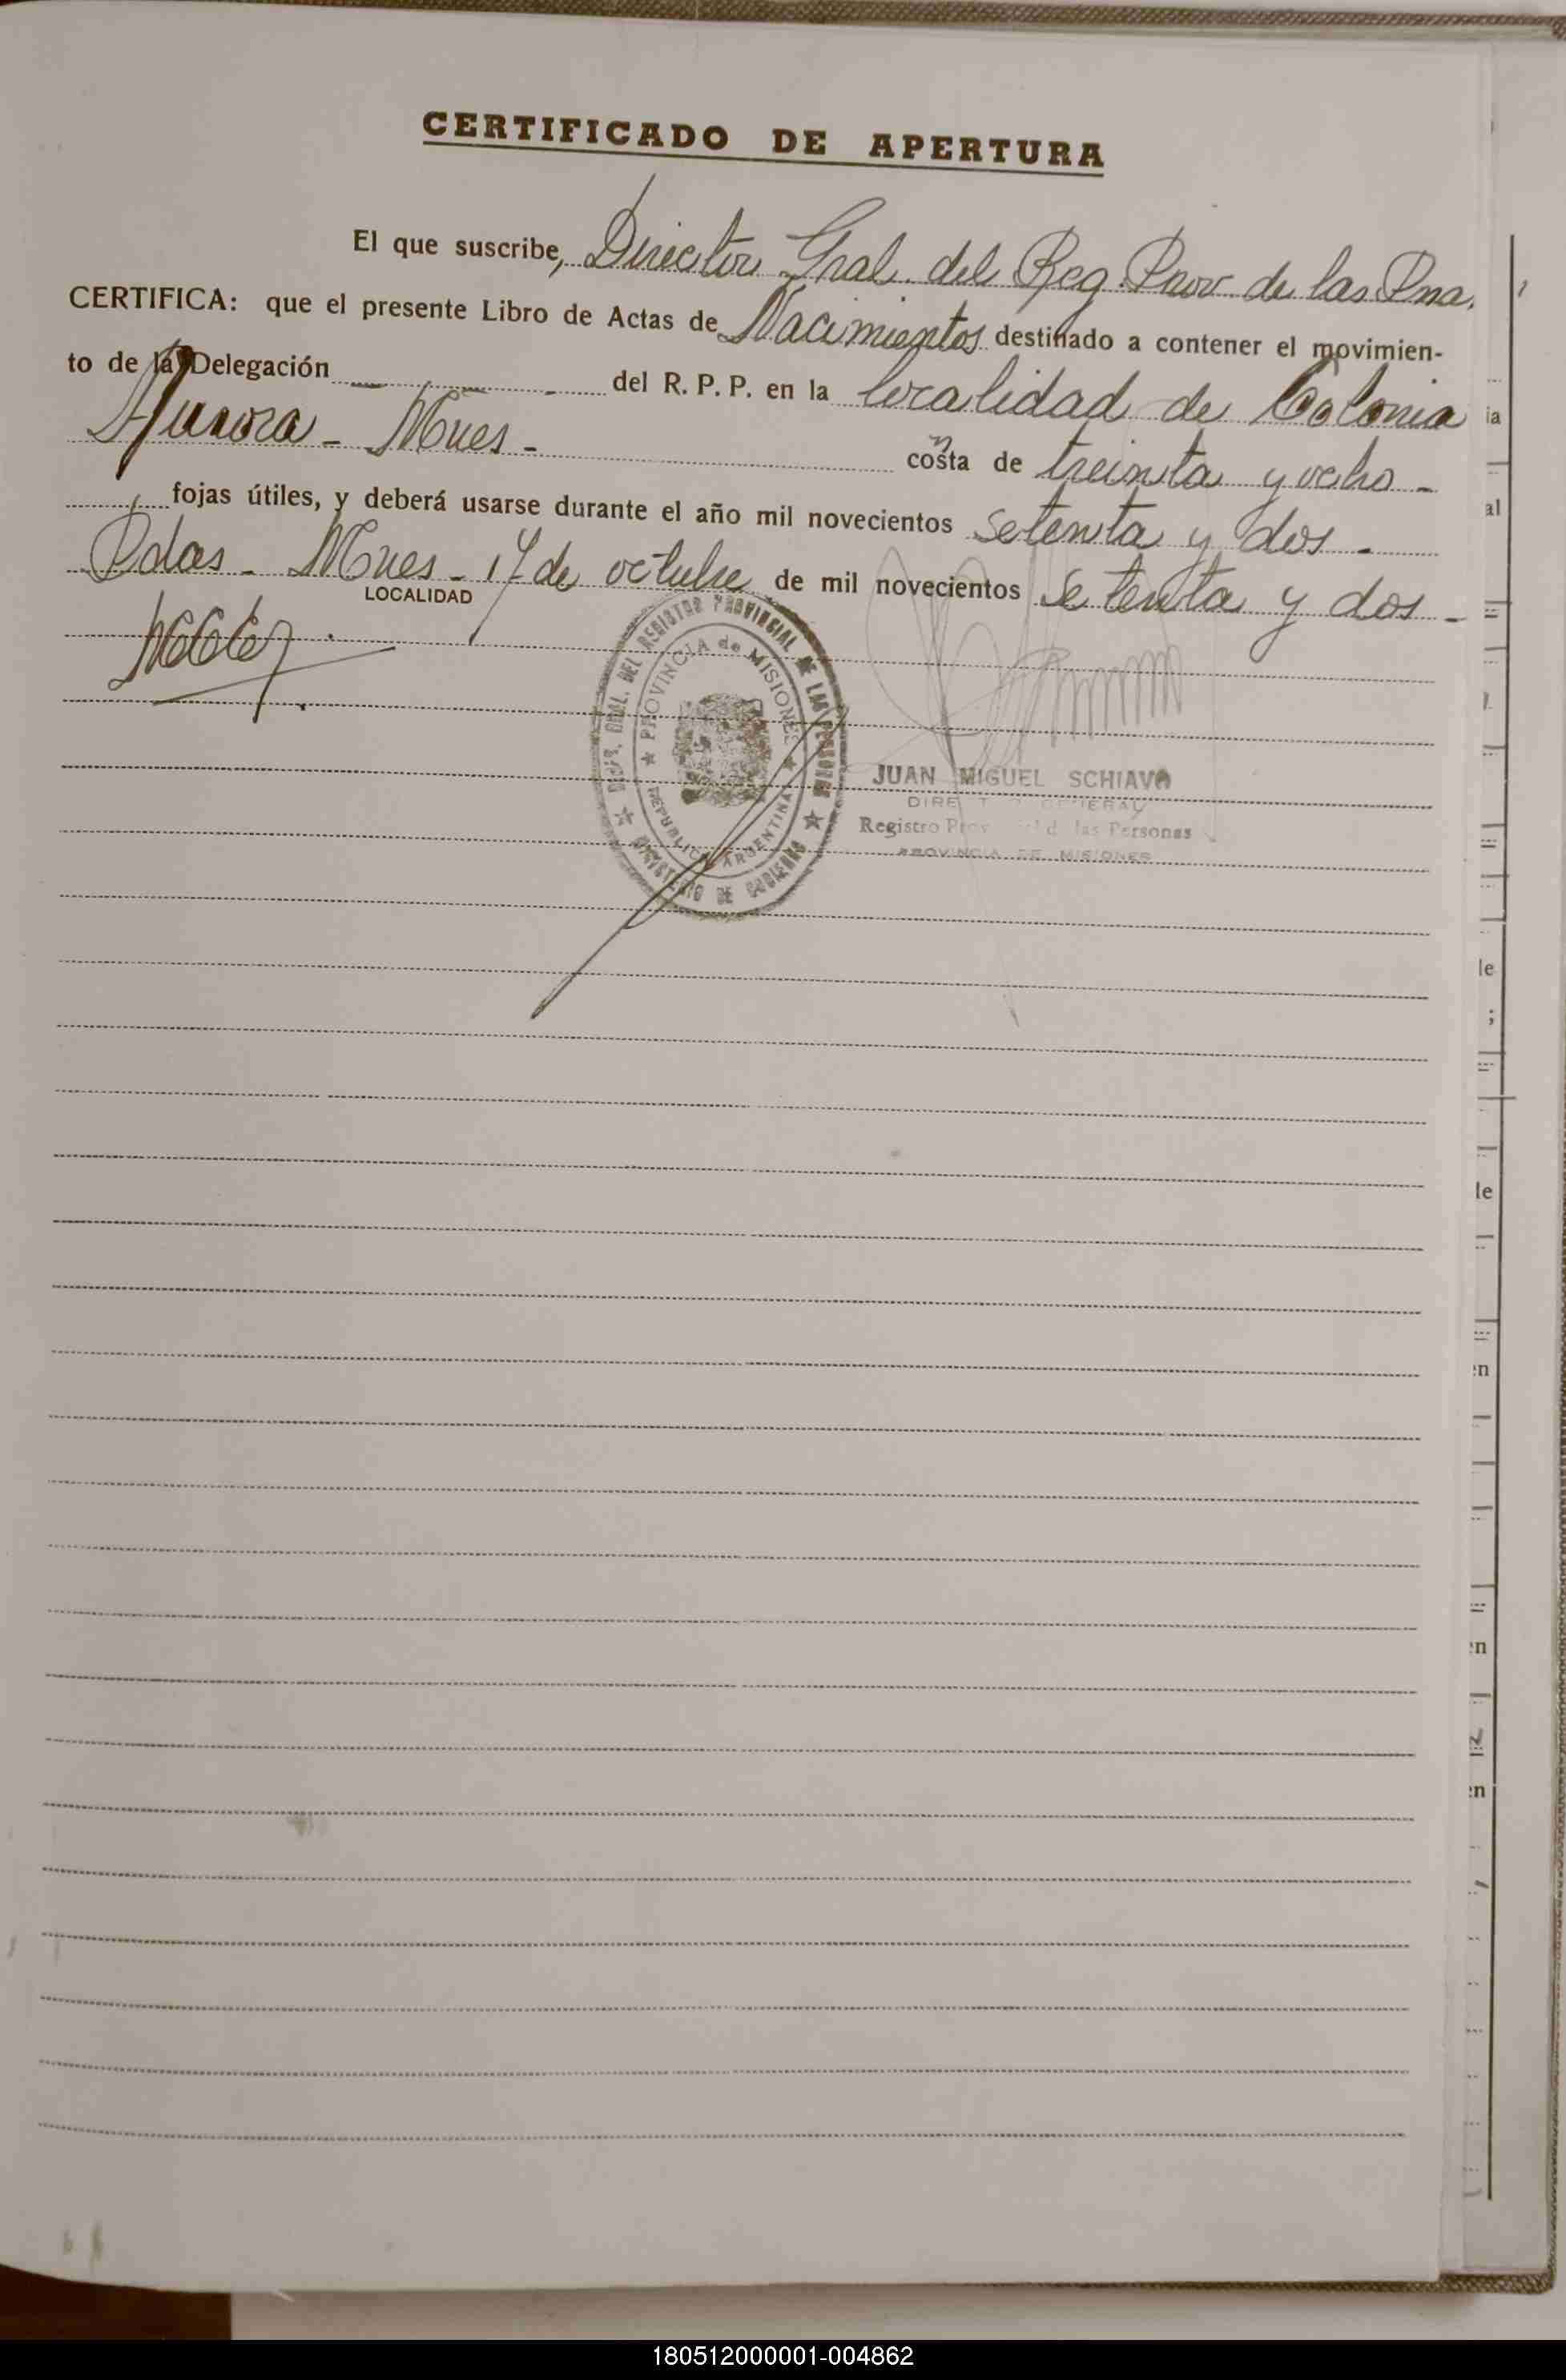 CERTIFICADO DE APERTURA
El que suscribe, Director Gral. del Reg. Prov. de las Pna.
CERTIFICA: que el presente Libro de Actas de Nacimientos destinado a contener el movimien-
to de la Delegación del R. P. P. en la localidad de Colonia
Aurora - Mnes - costa de treinta y ocho -
fojas útiles, y deberá usarse durante el año mil novecientos setenta y dos -
Pdas - Mnes - 17 de octubre de mil novecientos setenta y dos -
LOCALIDAD
DEL REGISTRO PROVINCIAL DE LAS PERSONAS
★ PROVINCIA de MISIONES ★
REPUBLICA ARGENTINA
★ MINISTERIO DE GOBIERNO ★
JUAN MIGUEL SCHIAVO
Registro las Personas
PROVINCIA DE MISIONES
ia
al
le
;
le
en
en
en
180512000001-004862